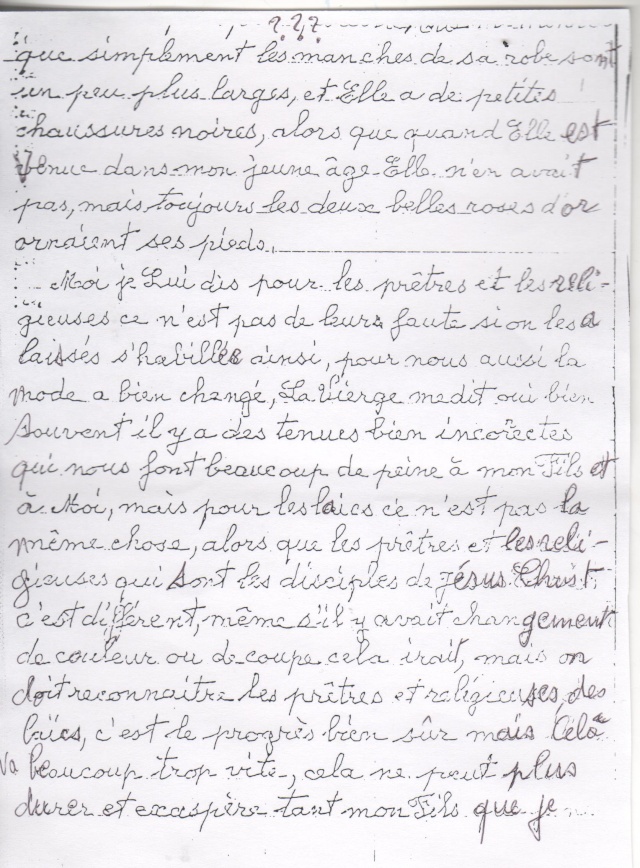 ? ? ?
que simplement les manches de sa robe sont
un peu plus larges, et Elle a de petites
chaussures noires, alors que quand Elle est
venue dans mon jeune âge Elle n'en avait
pas, mais toujours les deux belles roses d'or
ornaient ses pieds.
Moi je Lui dis pour les prêtres et les reli-
gieuses ce n'est pas de leurs faute si on les a
laissés s'habillés ainsi, pour nous aussi la
mode a bien changé, La Vierge me dit oui bien
souvent il y a des tenues bien incorectes
qui nous font beaucoup de peine à mon Fils et
à Moi, mais pour les laïcs ce n'est pas la
même chose, alors que les prêtres et les reli-
gieuses qui sont les disciples de Jésus Christ
c'est différent, même s'il y avait changement
de couleur ou de coupe cela irait, mais on
doit reconnaître les prêtres et religieuses, des
laïcs, c'est le progrès bien sûr mais Cela
va beaucoup trop vite, cela ne peut plus
durer et exaspère tant mon Fils que je